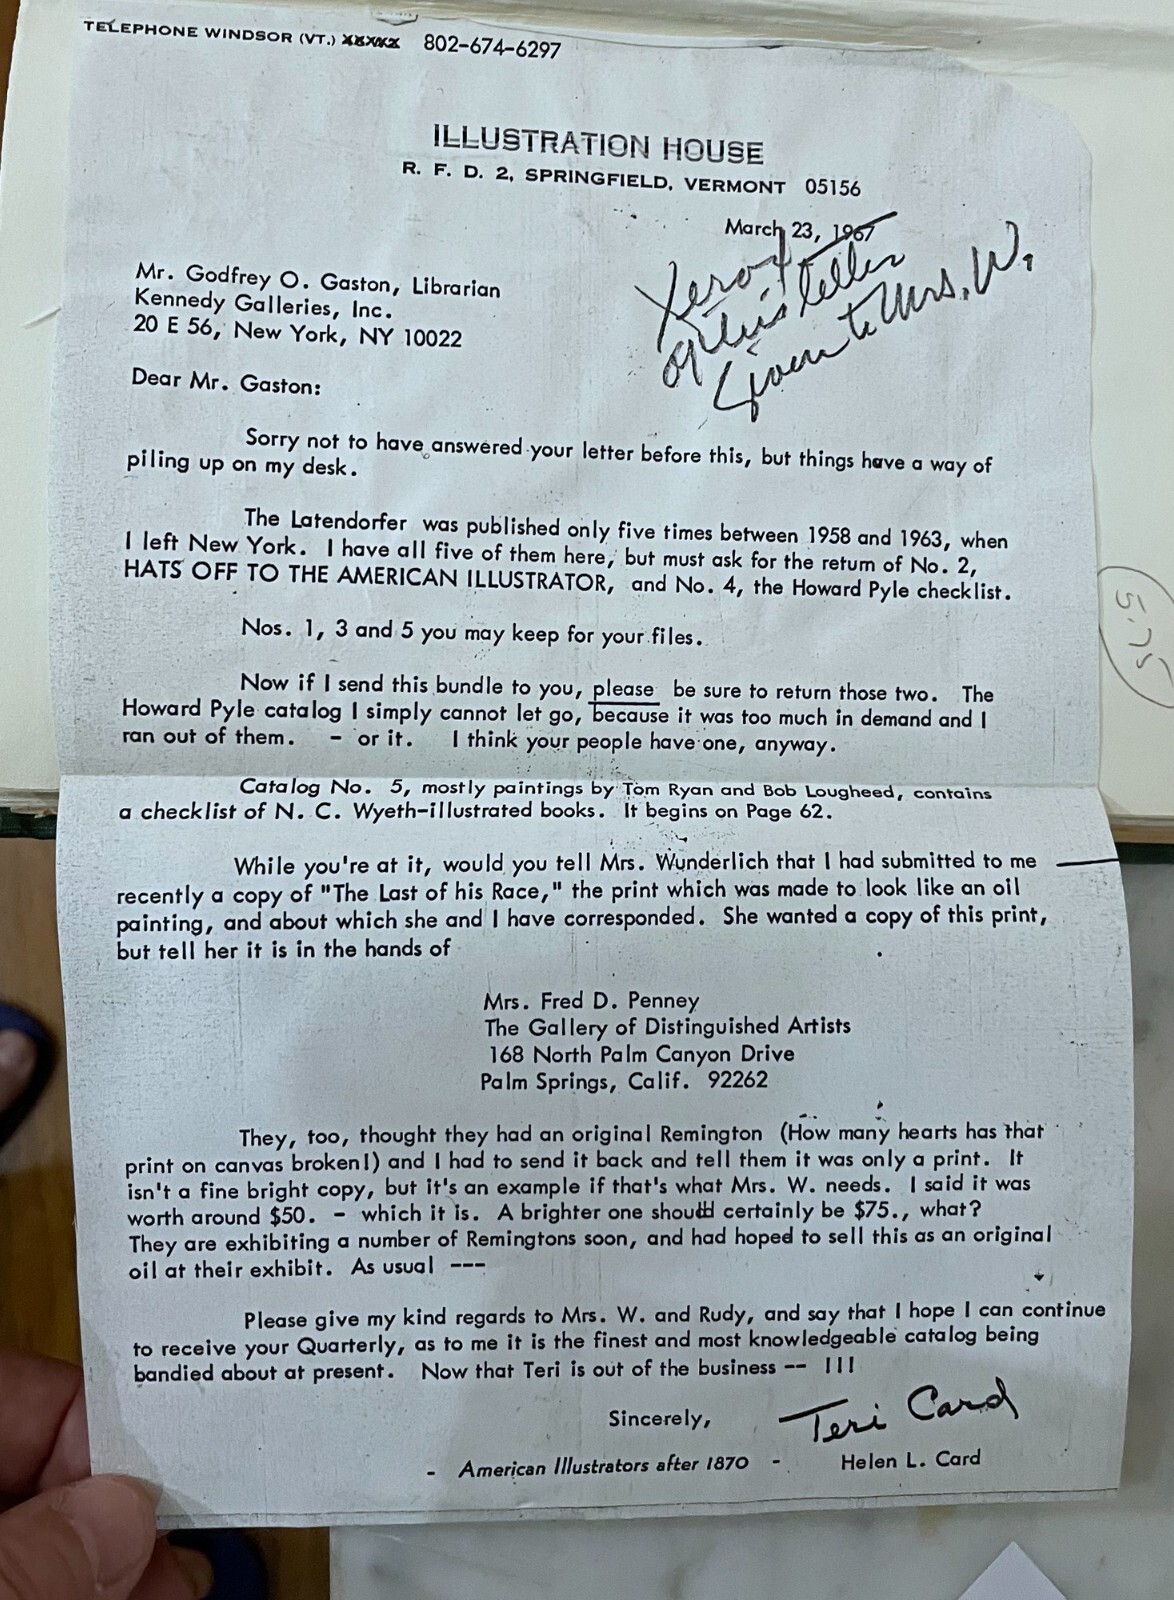 TELEPHONE WINDSOR (VT.) 802-674-6297
ILLUSTRATION HOUSE
R. F. D. 2, SPRINGFIELD, VERMONT 05156
March 23, 1967
Xerox
of this letter
Given to Mrs. W.
Mr. Godfrey O. Gaston, Librarian
Kennedy Galleries, Inc.
20 E 56, New York, NY 10022
Dear Mr. Gaston:
Sorry not to have answered your letter before this, but things have a way of
piling up on my desk.
The Latendorfer was published only five times between 1958 and 1963, when
I left New York. I have all five of them here, but must ask for the return of No. 2,
HATS OFF TO THE AMERICAN ILLUSTRATOR, and No. 4, the Howard Pyle checklist.
Nos. 1, 3 and 5 you may keep for your files.
Now if I send this bundle to you, please be sure to return those two. The
Howard Pyle catalog I simply cannot let go, because it was too much in demand and I
ran out of them. - or it. I think your people have one, anyway.
Catalog No. 5, mostly paintings by Tom Ryan and Bob Lougheed, contains
a checklist of N. C. Wyeth-illustrated books. It begins on Page 62.
While you're at it, would you tell Mrs. Wunderlich that I had submitted to me
recently a copy of "The Last of his Race," the print which was made to look like an oil
painting, and about which she and I have corresponded. She wanted a copy of this print,
but tell her it is in the hands of
Mrs. Fred D. Penney
The Gallery of Distinguished Artists
168 North Palm Canyon Drive
Palm Springs, Calif. 92262
They, too, thought they had an original Remington (How many hearts has that
print on canvas broken!) and I had to send it back and tell them it was only a print. It
isn't a fine bright copy, but it's an example if that's what Mrs. W. needs. I said it was
worth around $50. - which it is. A brighter one should certainly be $75., what?
They are exhibiting a number of Remingtons soon, and had hoped to sell this as an original
oil at their exhibit. As usual ---
Please give my kind regards to Mrs. W. and Rudy, and say that I hope I can continue
to receive your Quarterly, as to me it is the finest and most knowledgeable catalog being
bandied about at present. Now that Teri is out of the business -- !!!
Sincerely,
Teri Card
- American Illustrators after 1870 - Helen L. Card